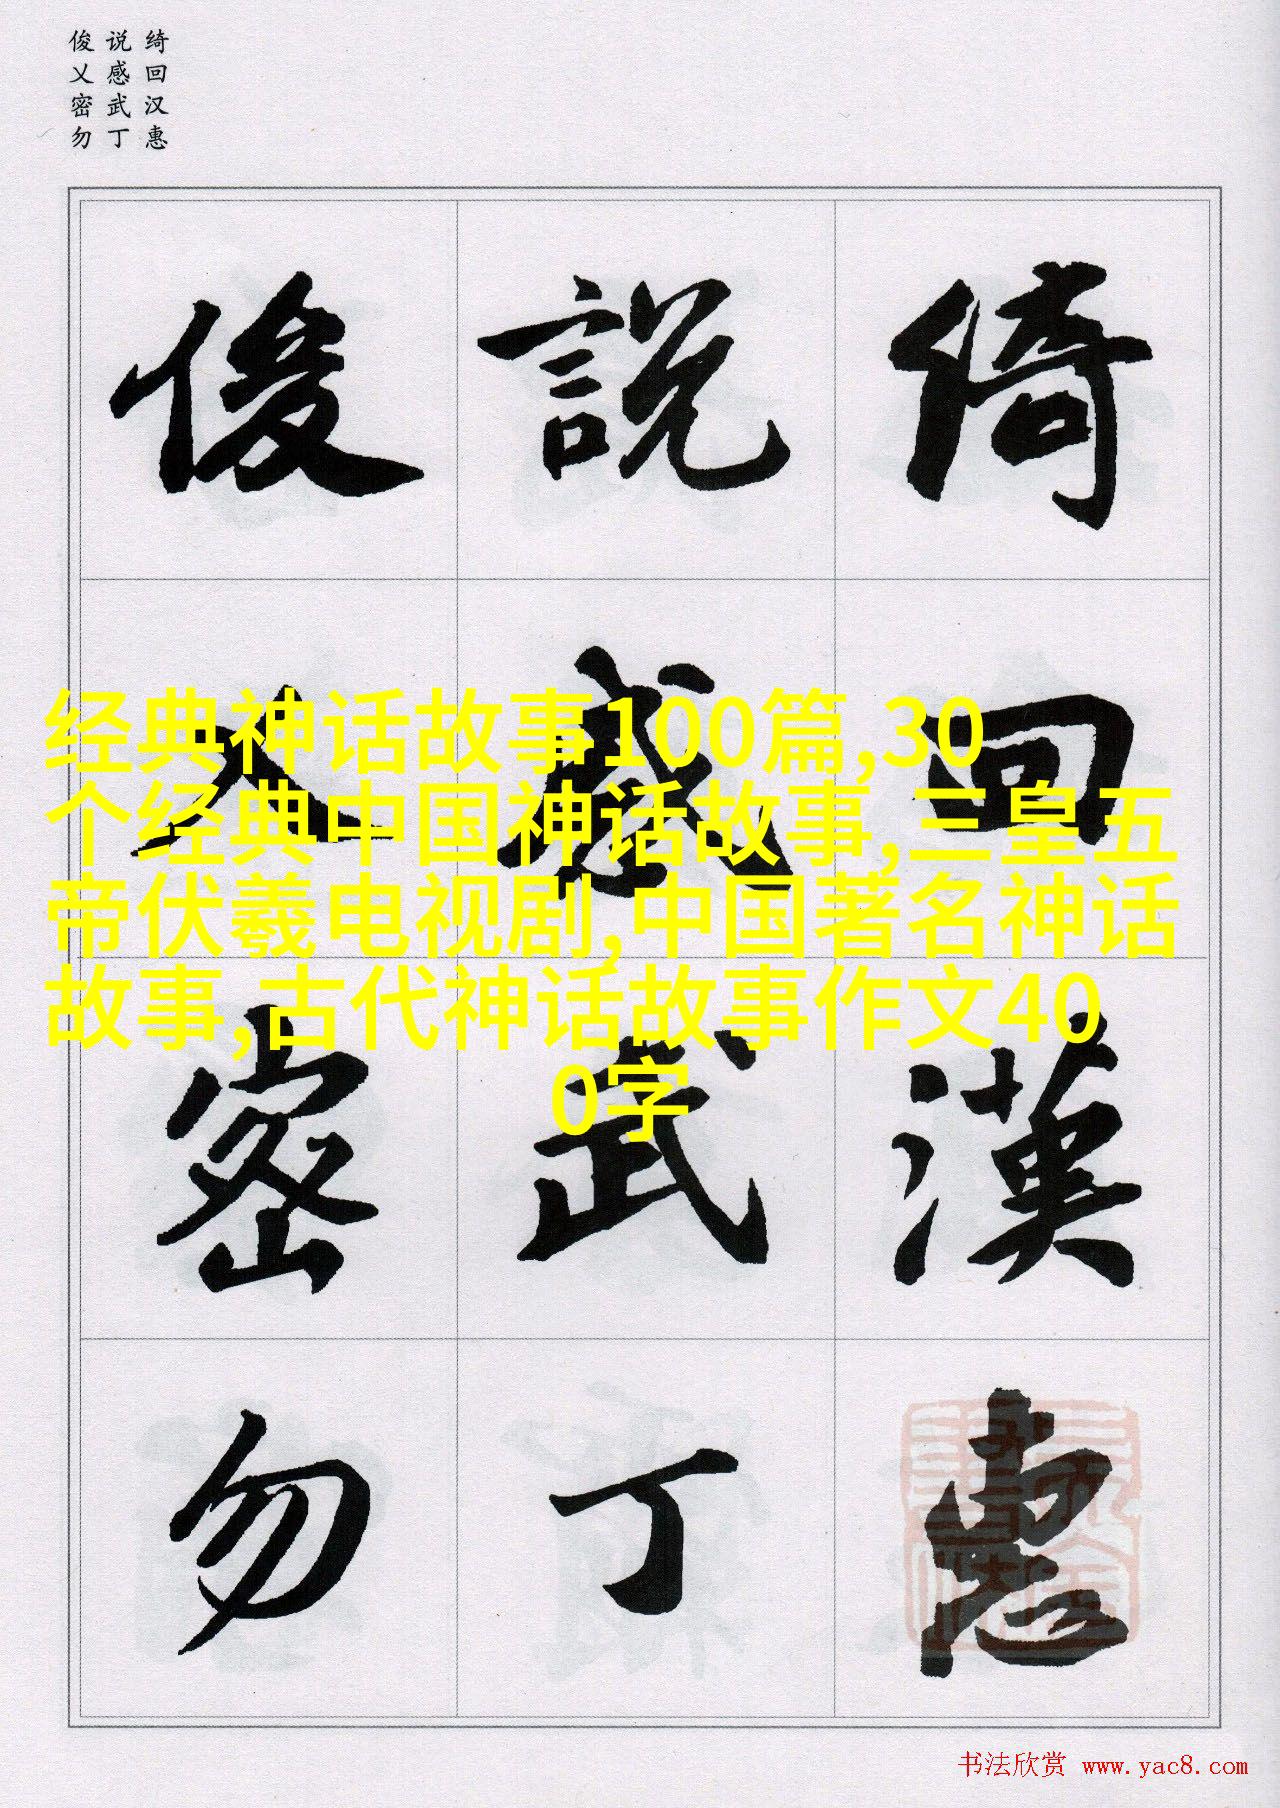 绮回汉惠
说感武丁
俊乂密勿
綺回漢惠
説感武丁
俊乂密勿
经典神话故事100篇,30
个经典中国神话故事,三皇五
帝伏羲电视剧,中国著名神话
故事,古代神话故事作文40
0字
书法欣赏 www.yac8.com